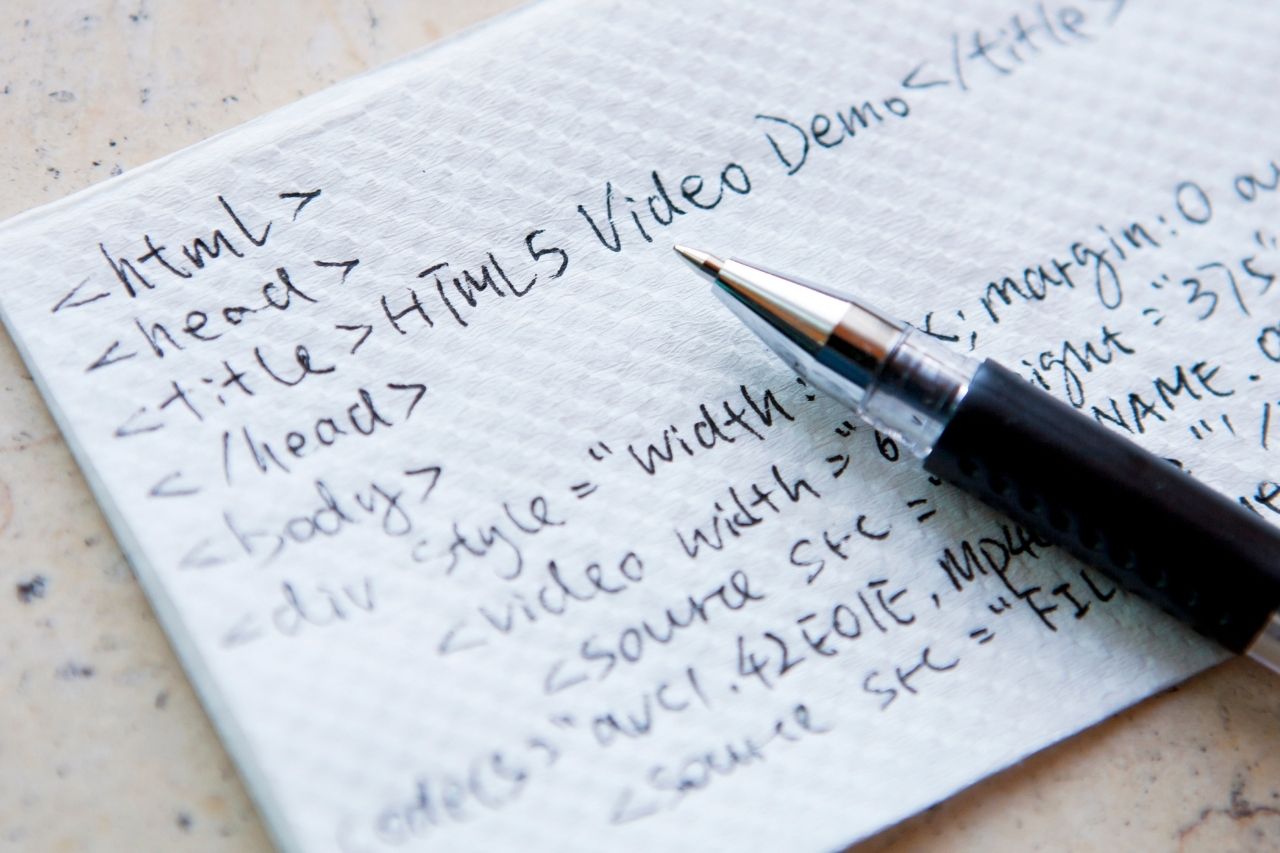 <html>
<head>
<title>HTML5 Video Demo</title>
</head>
<body>
<div style="width: ;margin:0
<video width="6 ight="375"
<source src=" NAME.
codecs="avc1.42E01E, mp4
<source src="FIL